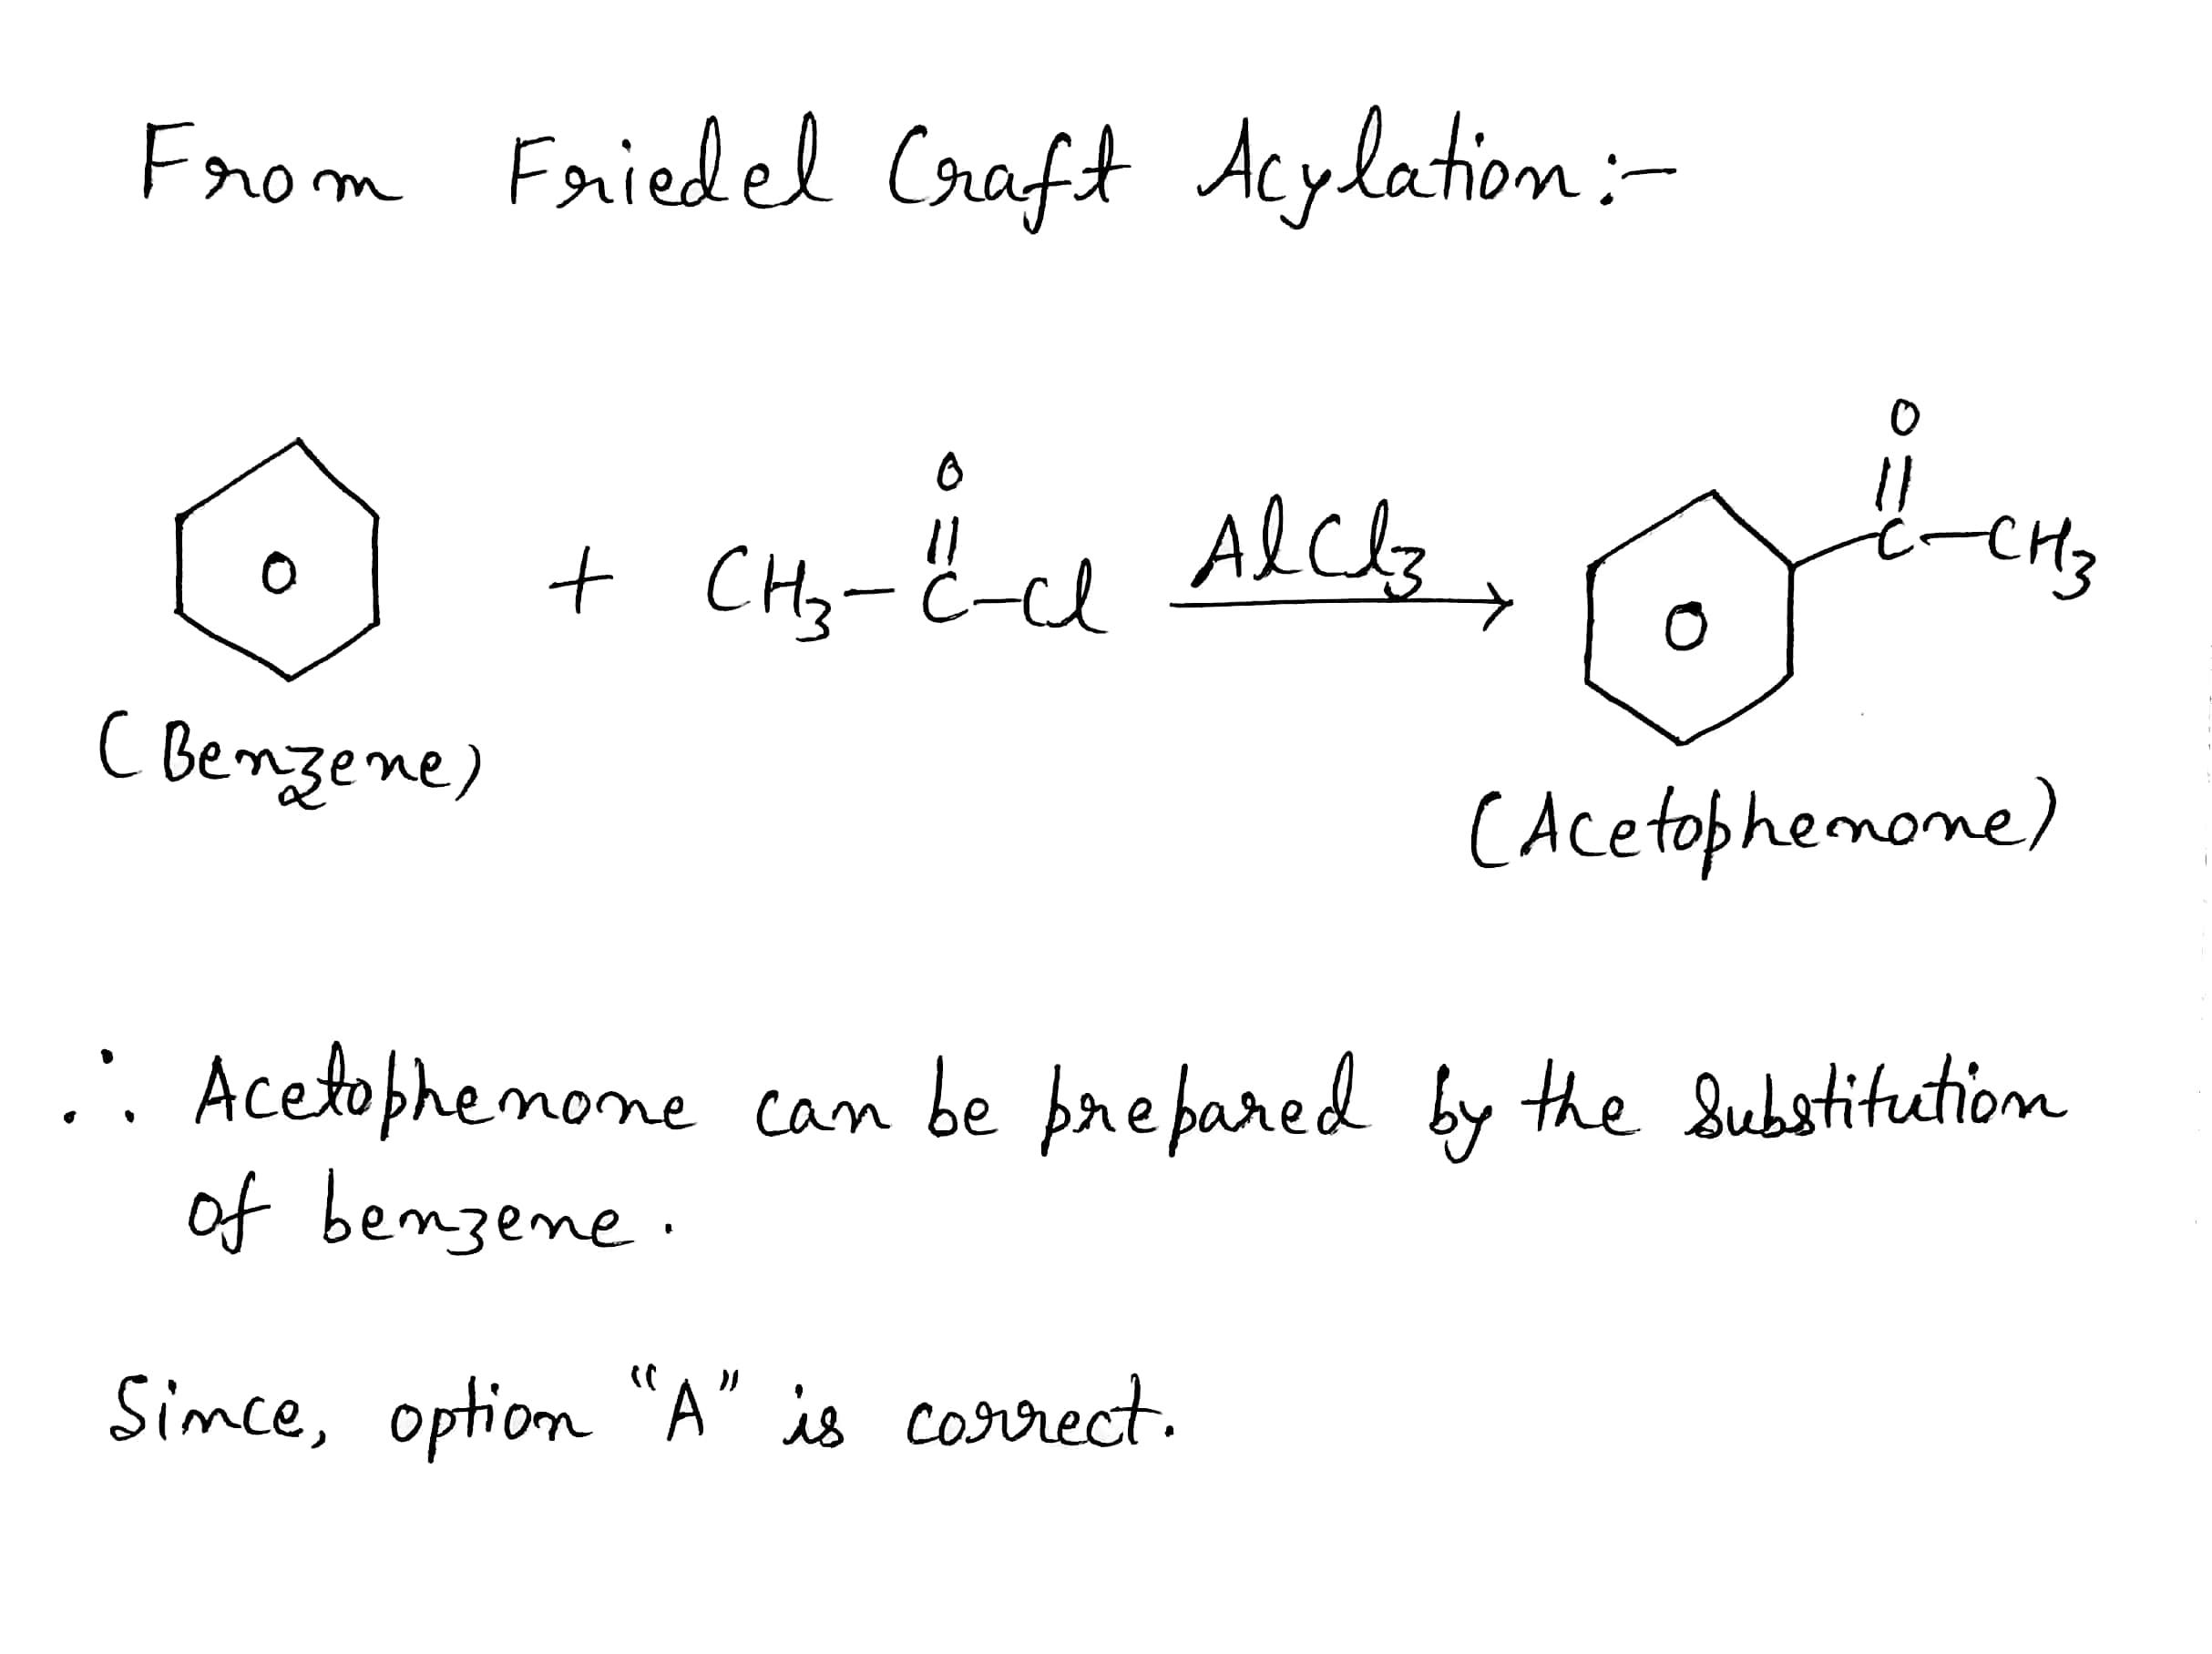 From Friedel Craft Acylation:-
O
O
|| 
||
+ CH3-C-Cl AlCl3 C-CH3
O
O
(Benzene)
(Acetophenone)
∴ Acetophenone can be prepared by the Substitution
of benzene.
Since, option "A" is correct.